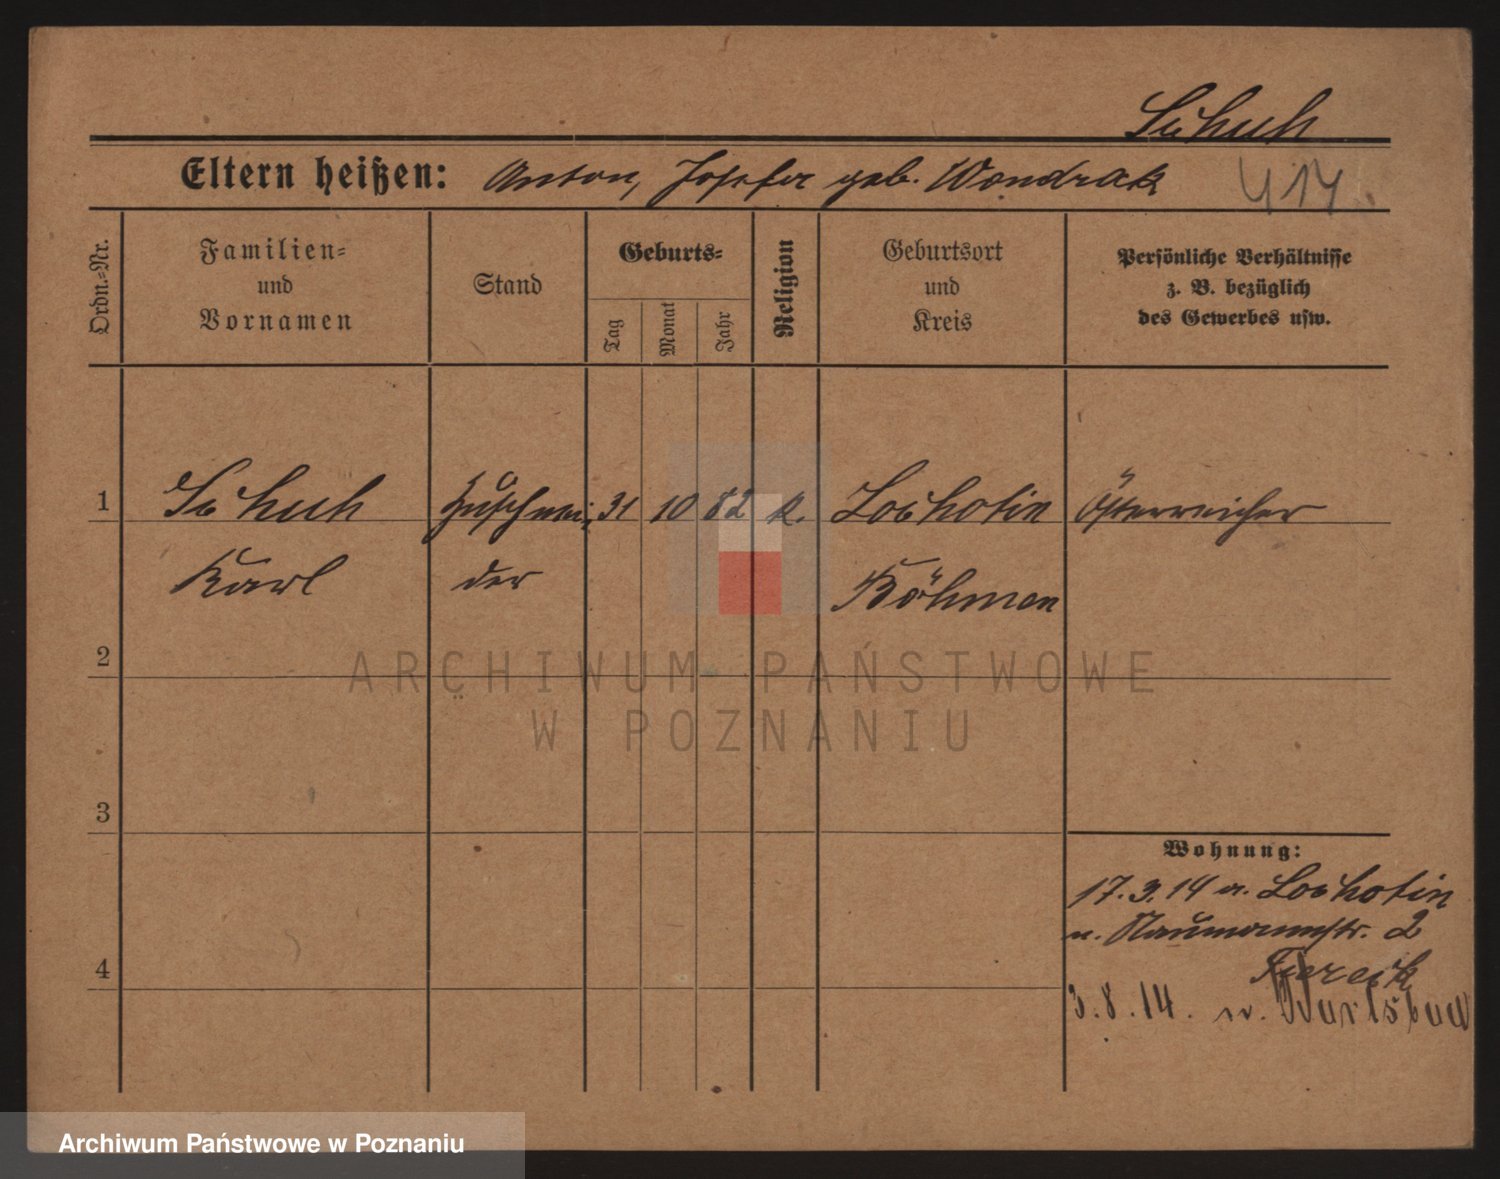 Schuh
Eltern heißen: Anton, Josefa geb. Wondrak
414
Ordn.-Nr.
Familien-
und
Vornamen
Stand
Geburts-
Tag
Monat
Jahr
Religion
Geburtsort
und
Kreis
Persönliche Verhältnisse
z. B. bezüglich
des Gewerbes usw.
1 Schuh Zuschnei- 31 10 82 k. Lochotin Österreicher
Karl der Böhmen
2
ARCHIWUM PAŃSTWOWE
W POZNANIU
3
Wohnung:
17.3.14 a. Lochotin
n. Naumannstr. 2
4
3.8.14. n. Karlsbad
Archiwum Państwowe w Poznaniu